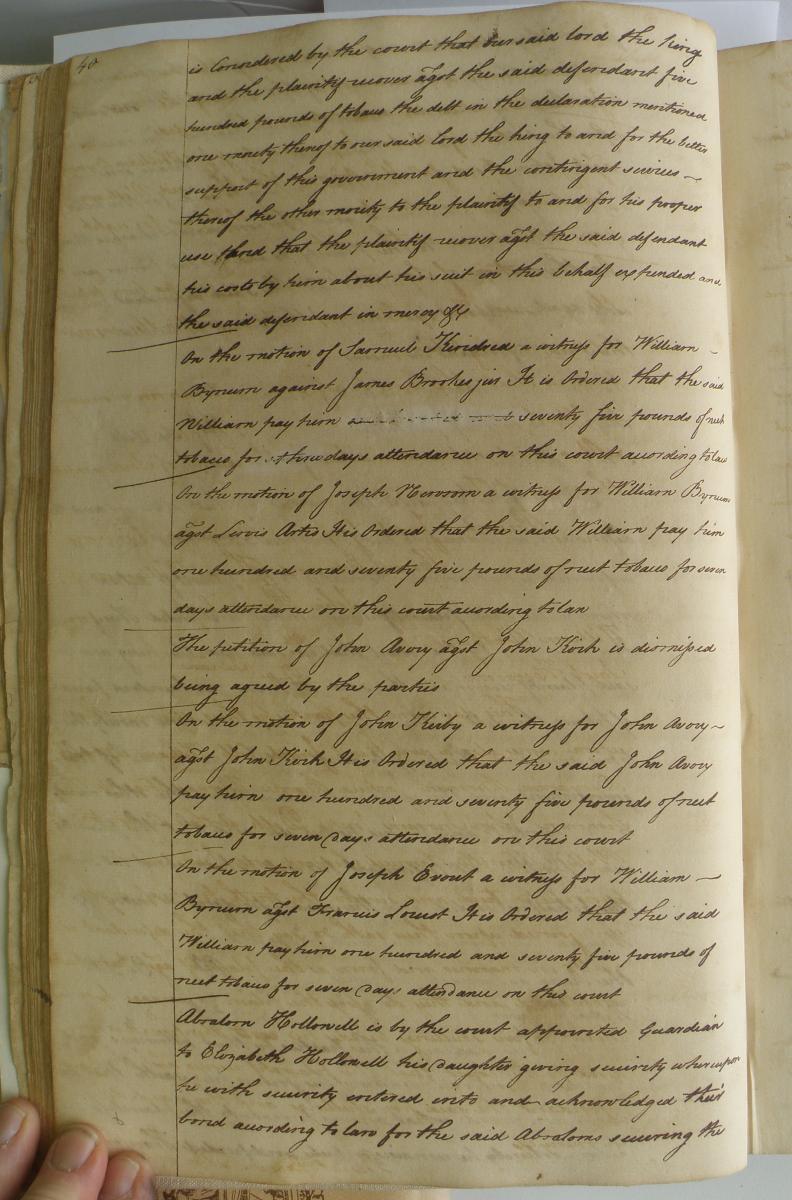 40
is Considered by the court that our said lord the king
and the plaintif recover agst the said defendant five
hundred pounds of tobaco the debt in the declaration mentioned
one moiety thereof to our said lord the king to and for the better
support of this government and the contingent services
thereof the other moiety to the plaintif to and for his proper
use And that the plaintif recover agst the said defendant
his costs by him about his suit in this behalf expended and
the said defendant in mercy &c
On the motion of Samuel Kindred a witness for William
Bynum against James Brookes jur It is Ordered that the said
William pay him seventy five pounds of neet
tobaco for three days attendance on this court acording to law
On the motion of Joseph Newsom a witness for William Bynum
agst Lewis Artis It is Ordered that the said William pay him
one hundred and seventy five pounds of neet tobaco for seven
days attendance on this court acording to law
The petition of John Avory agst John Kirk is dismissed
being agreed by the parties
On the motion of John Kirby a witness for John Avory
agst John Kirk It is Ordered that the said John Avory
pay him one hundred and seventy five pounds of neet
tobaco for seven Days attendance on this court
On the motion of Joseph a witness for William
Bynum agst Francis It is Ordered that the said
William pay him one hundred and seventy five pounds of
neet tobaco for seven Days attendance on this court
Absalom Hollowell is by the court appointed Guardian
to Elizabeth Hollowell his Daughter giving security whereupon
he with security entered into and acknowledged their
bond acording to law for the said Absaloms securing the